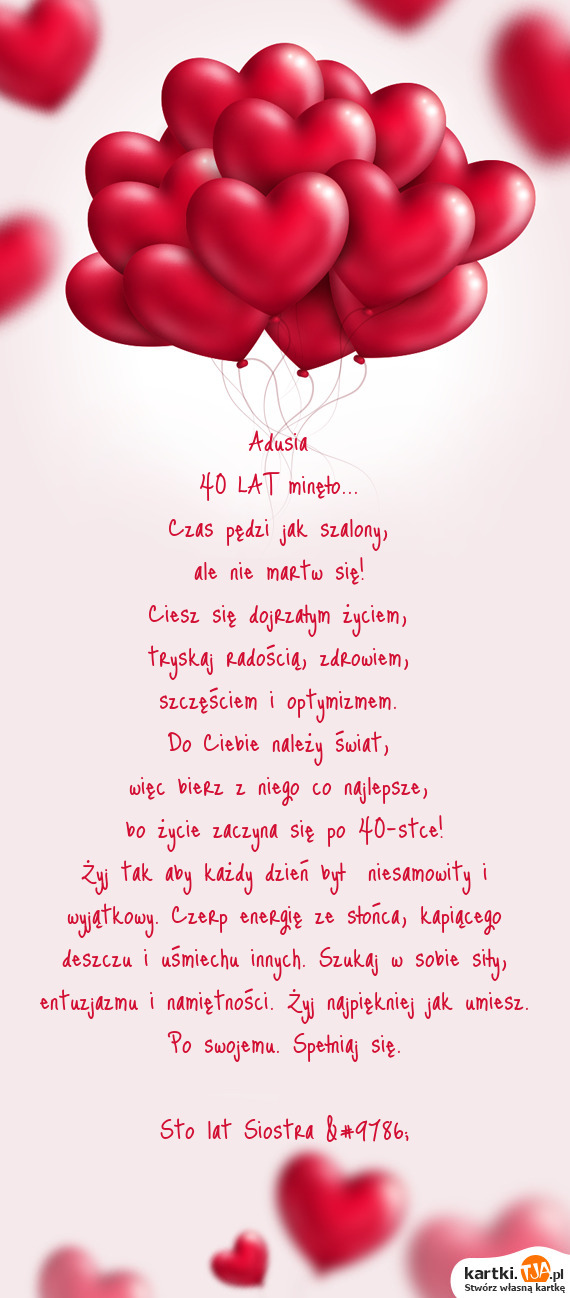 Adusia
40 LAT minęło...
Czas pędzi jak szalony,
ale nie martw się!
Ciesz się dojrzałym życiem,
tryskaj radością, zdrowiem,
szczęściem i optymizmem.
Do Ciebie należy świat,
więc bierz z niego co najlepsze,
bo życie zaczyna się po 40-stce!
Żyj tak aby każdy dzień był niesamowity i
wyjątkowy. Czerp energię ze słońca, kapiącego
deszczu i uśmiechu innych. Szukaj w sobie siły,
entuzjazmu i namiętności. Żyj najpiękniej jak umiesz.
Po swojemu. Spełniaj się.
Sto lat Siostra &#9786;
kartki.TJA.pl
Stwórz własną kartkę